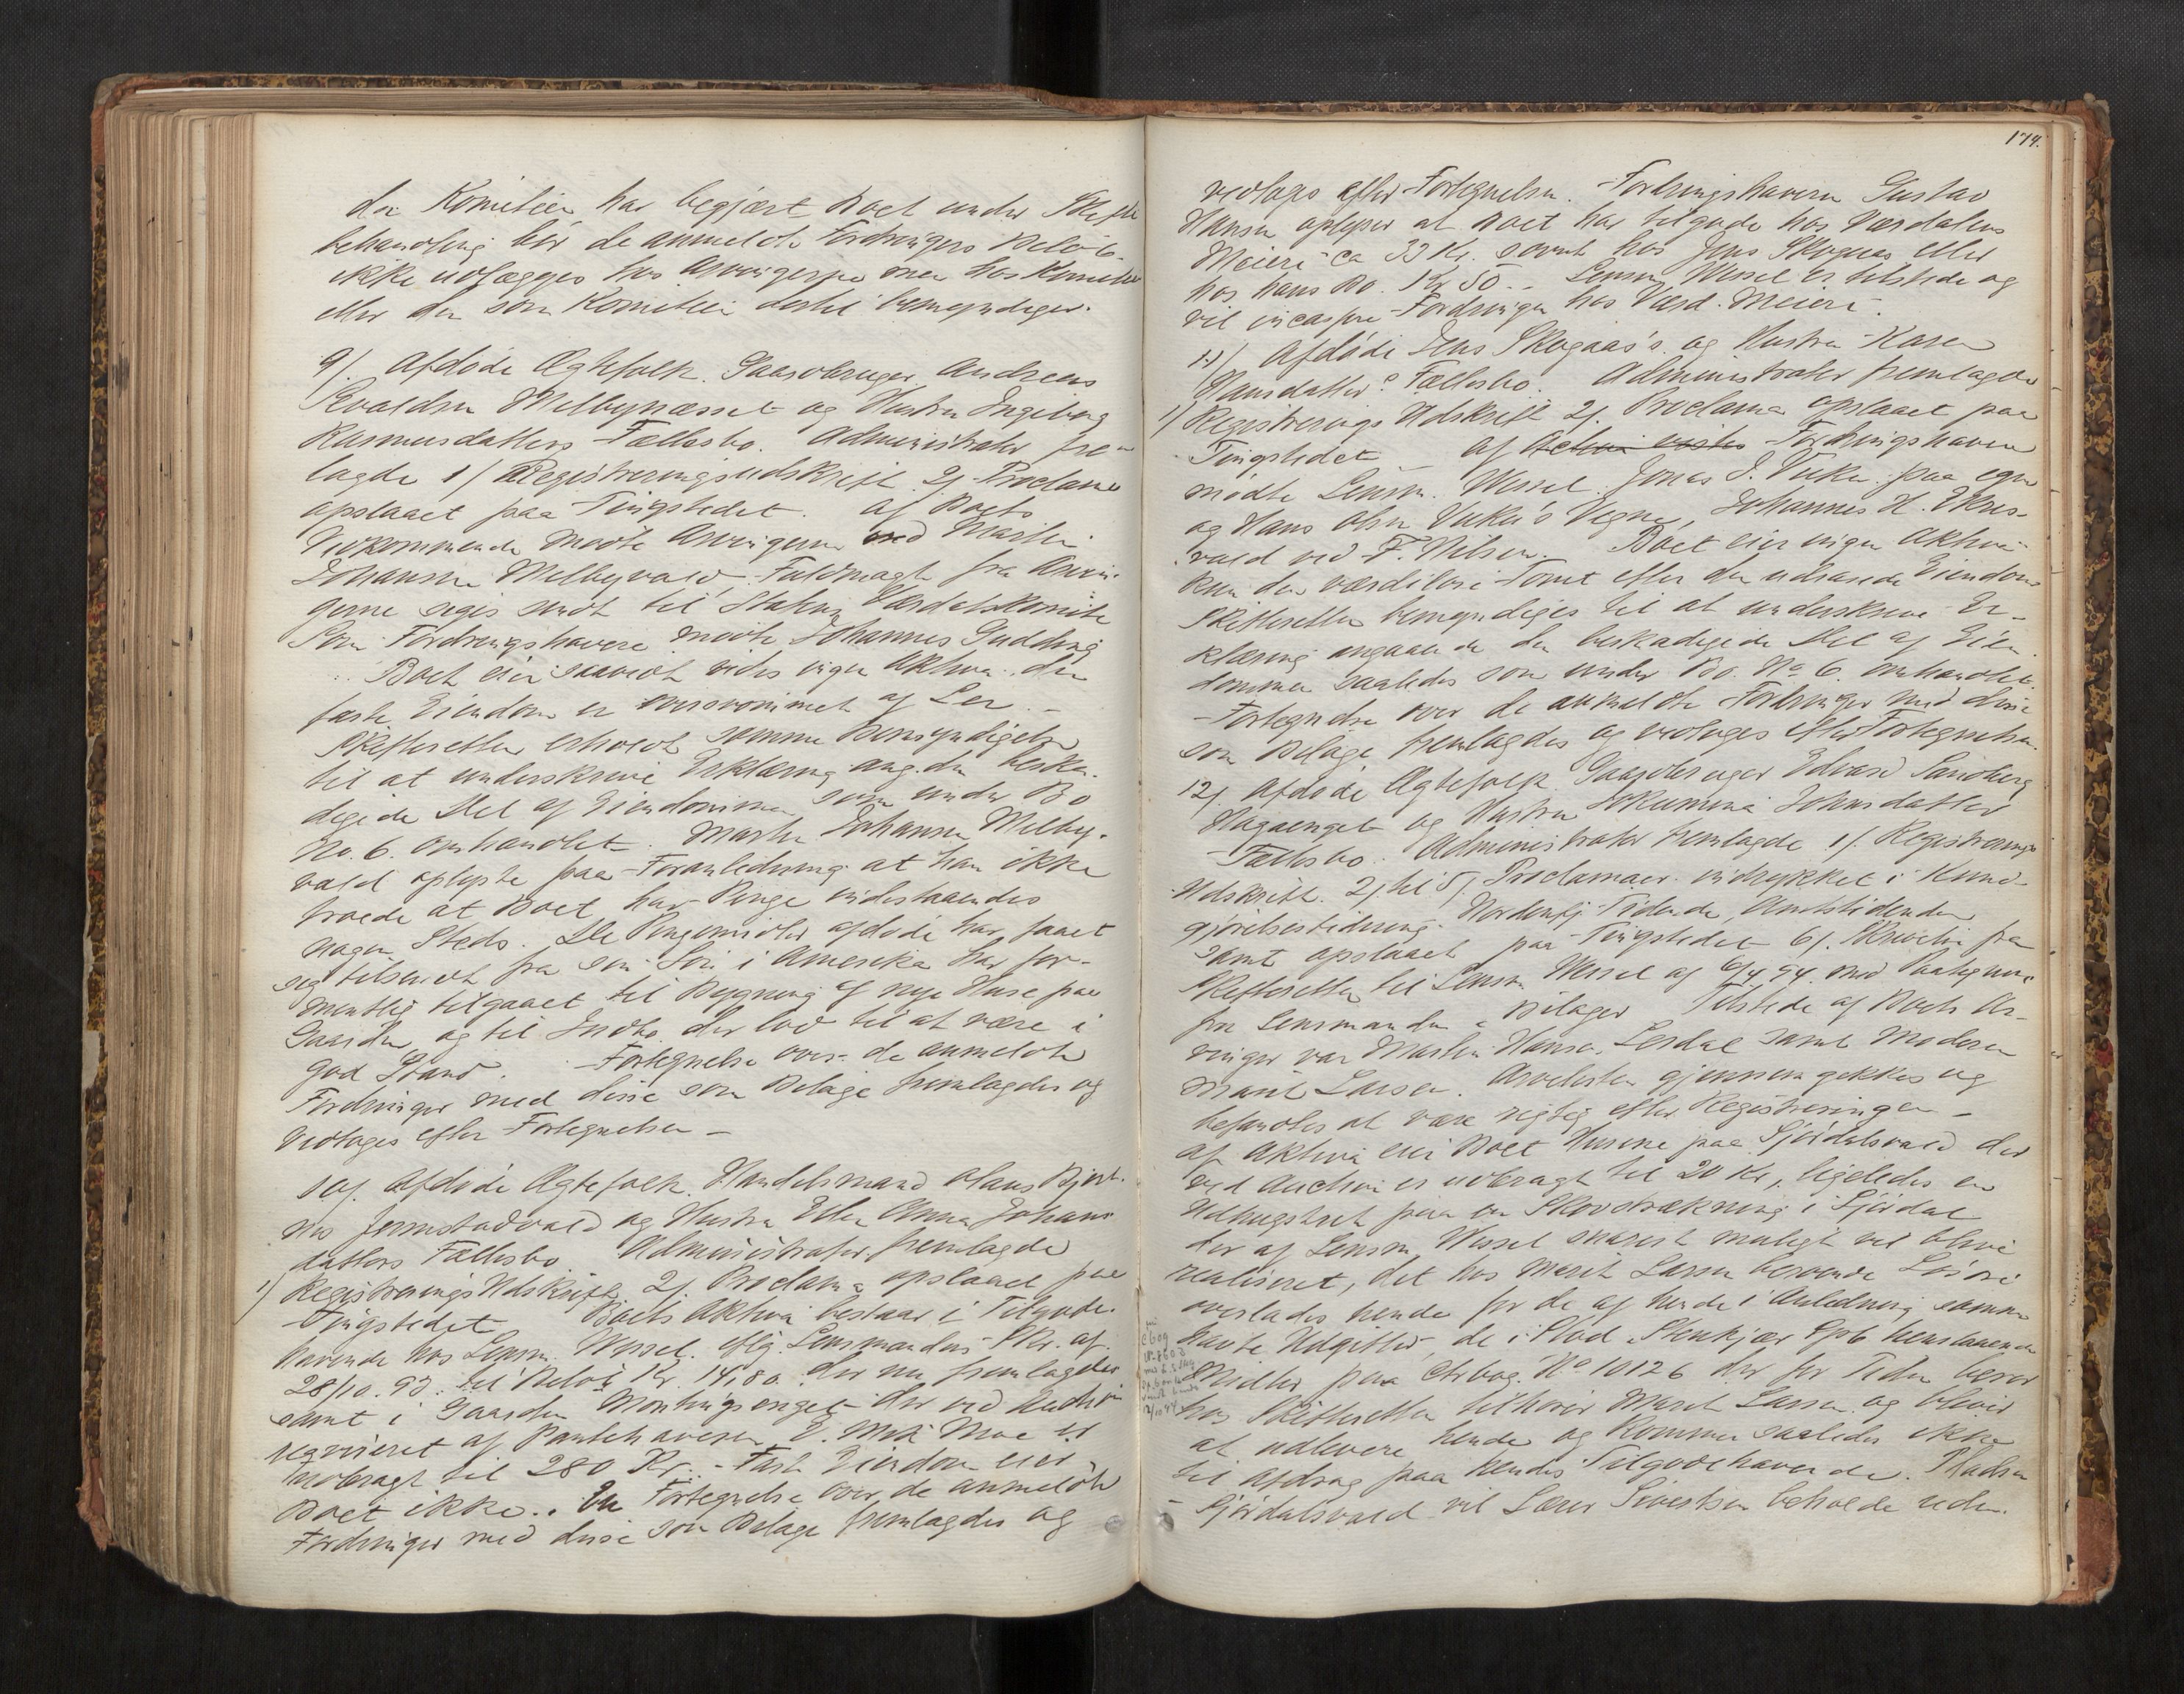 da Komiteen har begjært Boet under Skifte
behandling bør de anmeldte Fordringers Beløb
ikke udlægges hos Arvingerne men hos Komiteen
eller den som Komiteen dertil bemyndiger.
9/. Afdøde Ægtefolk Gaardbruger Andreas
Evaldsen Melbynesset og Hustru Ingeborg
Rasmusdatters Fællesbo. Administrator frem
lagde 1/ Registreringsudskrift 2/ Proclama
opslaaet paa Tingstedet. Af Boets
Vedkommende mødte Arvingerne ved Martin
Johansen Melbyvald. Fuldmagt fra Arvin-
gerne siges sendt til Statens Værdalskomite
Som Fordringshavere mødte Johannes Gudding
Boet eier saavidt vides ingen Aktiva, den
faste Eiendom er oversvømmet af Ler. -
Skifteretten erholdt samme Bemyndigelse
til at underskrive Erklæring ang. den beska-
digede Del af Eiendommen som under Bo
No. 6. omhandlet. Martin Johansen Melby-
vald oplyste paa Foranledning at han ikke
troede at Boet har Penge indestaaende
nogen Steds. De Pengemidler afdøde har faaet
sig tilsendt fra sin Søn i Amerika har for-
mentlig tilgaaet til Bygning af nye Huse paa
Gaarden og til Indbo der lod til at være i
god Stand. Fortegnelse over de anmeldte
Fordringer med disse som Bilage fremlagdes og
Vedtages efter Fortegnelsen -
10/. Afdøde Ægtefolk Handelsmand Olaus
Jermstadvald og Hustru Ellen Anna Johans
datters Fællesbo Administrator fremlagde
1/ Registrerings Udskrift 2/. Proclama opslaaet paa
Tingstedet Boets Aktiva bestaar i Tilgode-
havende hos Lensm. Wessel iflg. Lensmandens Skr. af
28/10. 93. til Beløb Kr. 14,80 der nu fremlagdes
samt i Gaarden der ved Auktion
reqvireret af Panthaveren E. Moe er
udbragt til 280 Kr. - Fast Eiendom eier
Boet ikke. En Fortegnelse over de anmeldte
Fordringer med disse som Bilage fremlagdes og
174.
vedtages efter Fortegnelsen. Fordringshaveren Gustav
Hansen oplyser at Boet har tilgode hos Værdalens
Meieri ca 33 Kr. samt hos Jens Skogaas eller
hos hans Bo. Kr 50. - Lensm. Wessel er tilstede og
vil incassere Fordringen hos Værd. Meieri.
11/ Afdøde Jens Skogaas's og Hustru Karen
Hansdatter's Fællesbo. Administrator fremlagde
1/ Registrerings Udskrift 2/. Proclama opslaaet paa
Tingstedet - Af Fordringshavere
mødte Lensm. Wessel. Jonas J. Vuku paa egne
og Hans Olsen Vuku's Vegne, Johannes H. Ekres-
vald ved F. Nilsen. - Boet eier ingen Aktiva
kun den værdiløse Tomt efter den udrasede Eiendom
Skifteretten bemyndiges til at underskrive Er-
klæring angaaende den beskadigede Del af Eien-
dommen saaledes som under Bo No 6. omhandlet.
- Fortegnelse over de anmeldte Fordringer med disse
som Bilage fremlagdes og vedtages efter Fortegnelsen.
12/ Afdøde Ægtefolk Gaardbruger Edvard Sandberg
Hagaenget og Hustru Johansdatter
Fællesbo. Administrator fremlagde 1/. Registrerings
Udskrift. 2/ til 5/. Proclamaer indrykket i Kund-
gjørelsestidende, Nordenfj. Tidende, Amtstidenden
samt opslaaet paa Tingstedet 6/. Skrivelse fra
Skifteretten til Lensm Wessel af 6/4 94. med Paategning
fra Lensmanden & Bilager Tilstede af Boets Ar-
vinger var Martin Hansen Lerdal samt Moderen
Marit Larsen. Arvelisten gjennemgikkes og
befandtes at være rigtig efter Registreringen -
af Aktiva eier Boet Husene paa Sjørdalsvald der
ved Auction er udbragt til 20 Kr, ligeledes en
Udhugstret paa en Skovstrækning i Sjørdal
der af Lensm. Wessel snarest muligt vil blive
realiseret, det hos Marit Larsen beroende Løsøre
overlades hende for de af hende i Anledning samme
havte Udgifter, de i Stod & Stenkjær Spb henstaaende
Midler paa Ctrbog No 10126 der for Tiden beror
hos Skifteretten tilhører Marit Larsen og bliver
at udlevere hende og kommer saaledes ikke
til Afdrag paa hendes Tilgodehavende. Pladsen
- Sjørdalsvald vil Lærer Sivertsen beholde uden